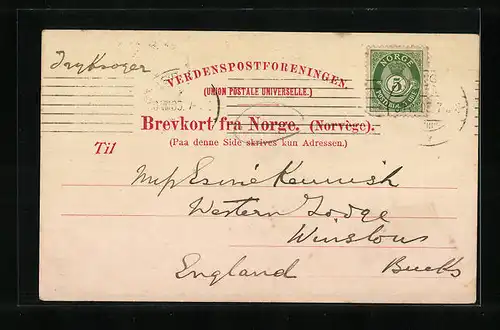 Tryksager
VERDENSPOSTFORENINGEN.
(UNION POSTALE UNIVERSELLE.)
NORGE
5
Brevkort fra Norge. (Norvège).
(Paa denne Side skrives kun Adressen.)
Til
Miss Esmé Kennish
Western Lodge
Winslow
England Bucks